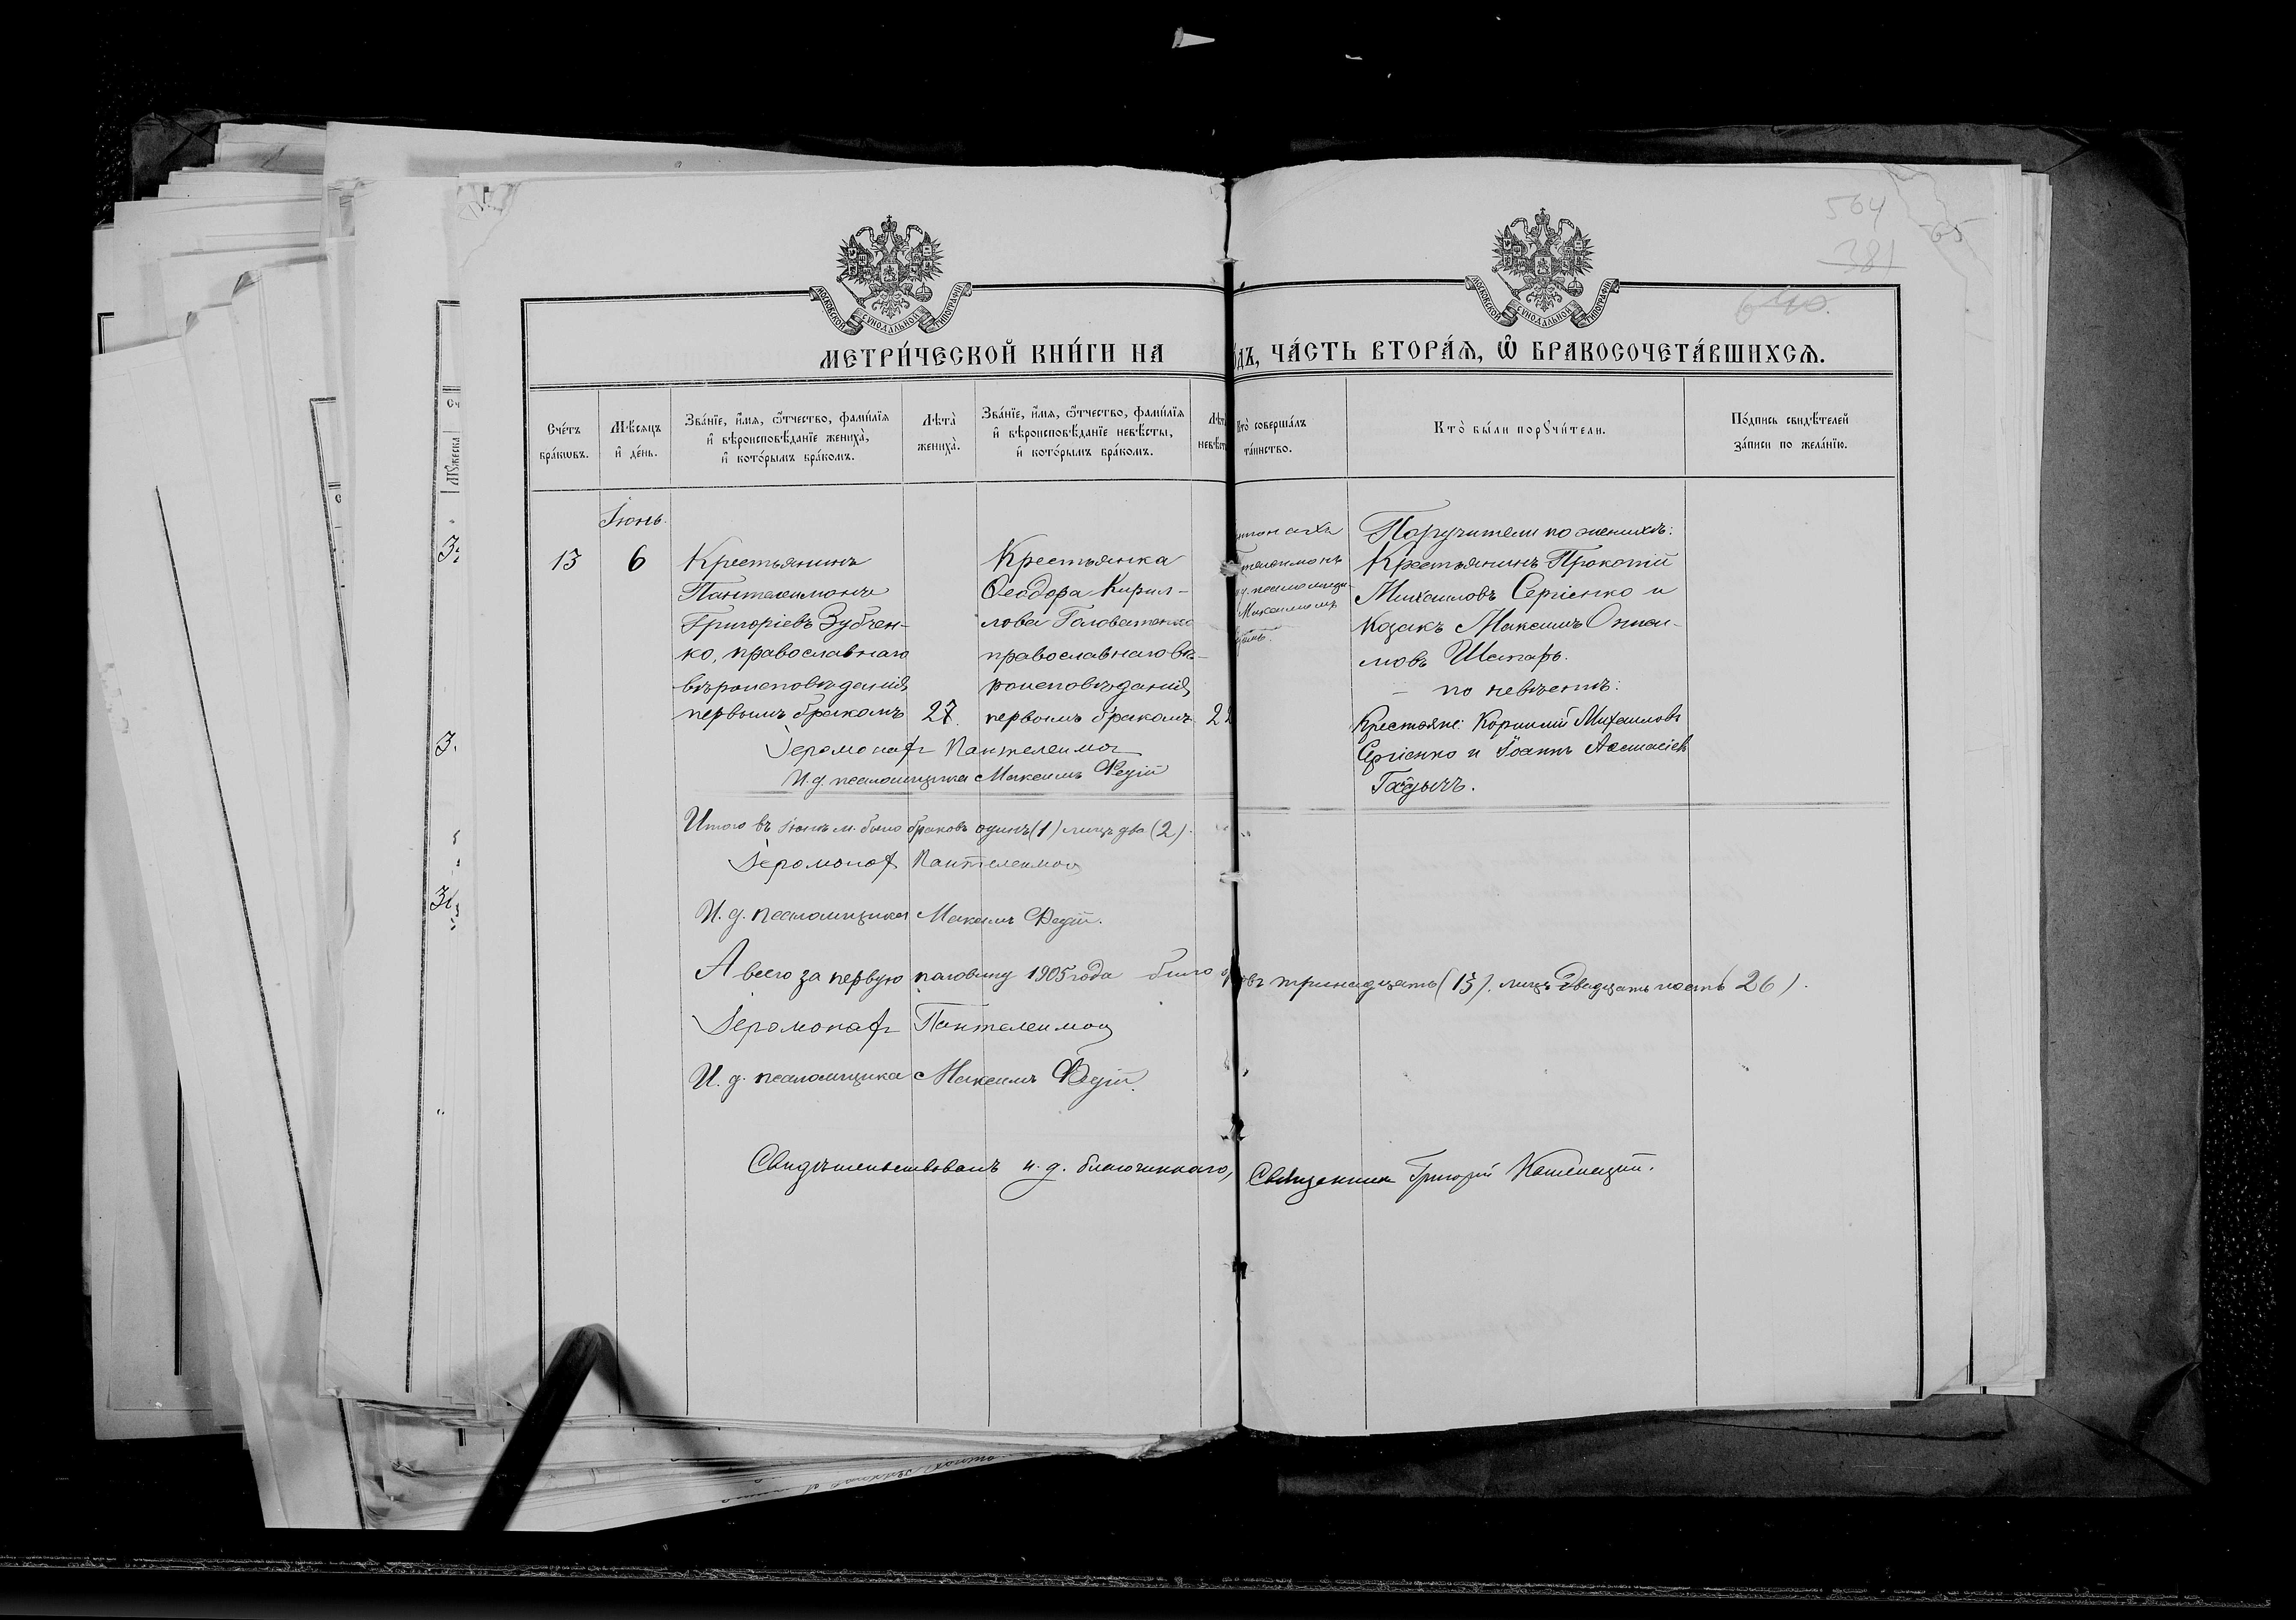 564
65
381
640.
МОСКОВСКОЙ СѴНОДАЛЬНОЙ ТИПОГРАФІИ
МОСКОВСКОЙ СѴНОДАЛЬНОЙ ТИПОГРАФІИ
МЕТРИ́ЧЕСКОЙ КНИ́ГИ НА
ДЪ, ЧА́СТЬ ВТОРА́Ѧ, Ѽ БРАКОСОЧЕТА́ВШИХСѦ.
Сче́тъ бра́кѡвъ.
Мѣ́сяцъ и҆ де́нь.
Зва́нїе, и҆́мѧ, ѻ҆́тчество, фами́лїѧ и҆ вѣроисповѣ́данїе жениха̀, и҆ кото́рымъ бра́комъ.
Лѣ́та жениха̀.
Зва́нїе, и҆́мѧ, ѻ҆́тчество, фами́лїѧ и҆ вѣроисповѣ́данїе невѣ́сты, и҆ кото́рымъ бра́комъ.
Лѣт
невѣст
Кто̀ соверша́лъ та́инство.
Кто̀ бы́ли порꙋчи́тели.
По́дпись свидѣ́телей за́писи по жела́нїю.
Іюнь.
13
6
Крестьянинъ
Пантелеимонъ
Григоріевъ Зубчен-
ко, православнаго
вѣроисповѣданія
первымъ бракомъ
27.
Крестьянка
Ѳеодора Кирил-
лова Головатенко
православнаго вѣ-
роисповѣданія
первымъ бракомъ
22
монахъ
телеимонъ
д. псаломщи-
Максимъ
Поручители по женихѣ:
Крестьянинъ Прокопій
Михаиловъ Сергіенко и
козакъ Максимъ Онпи-
мовъ Шапарь.
— по невѣстѣ:
Крестьяне: Корнилій Михаиловъ
Сергіенко и Іоаннъ Аѳанасіевъ
Гадычъ.
Іеромонахъ Пантелеимон
И. д. псаломщика Максимъ Федій
Итого въ Іюнѣ м. было браковъ одинъ (1) лицъ два (2).
Іеромонах Пантелеимон
И. д. псаломщика Максимъ Федій.
А всего за первую половину 1905 года было
овъ тринадцать (13). лицъ двадцать шесть (26).
Іеромонахъ Пантелеимон
И. д. псаломщика Максимъ Федій.
Свидѣтельствовалъ и. д. благочиннаго,
Священникъ Григорій Каменецкій.